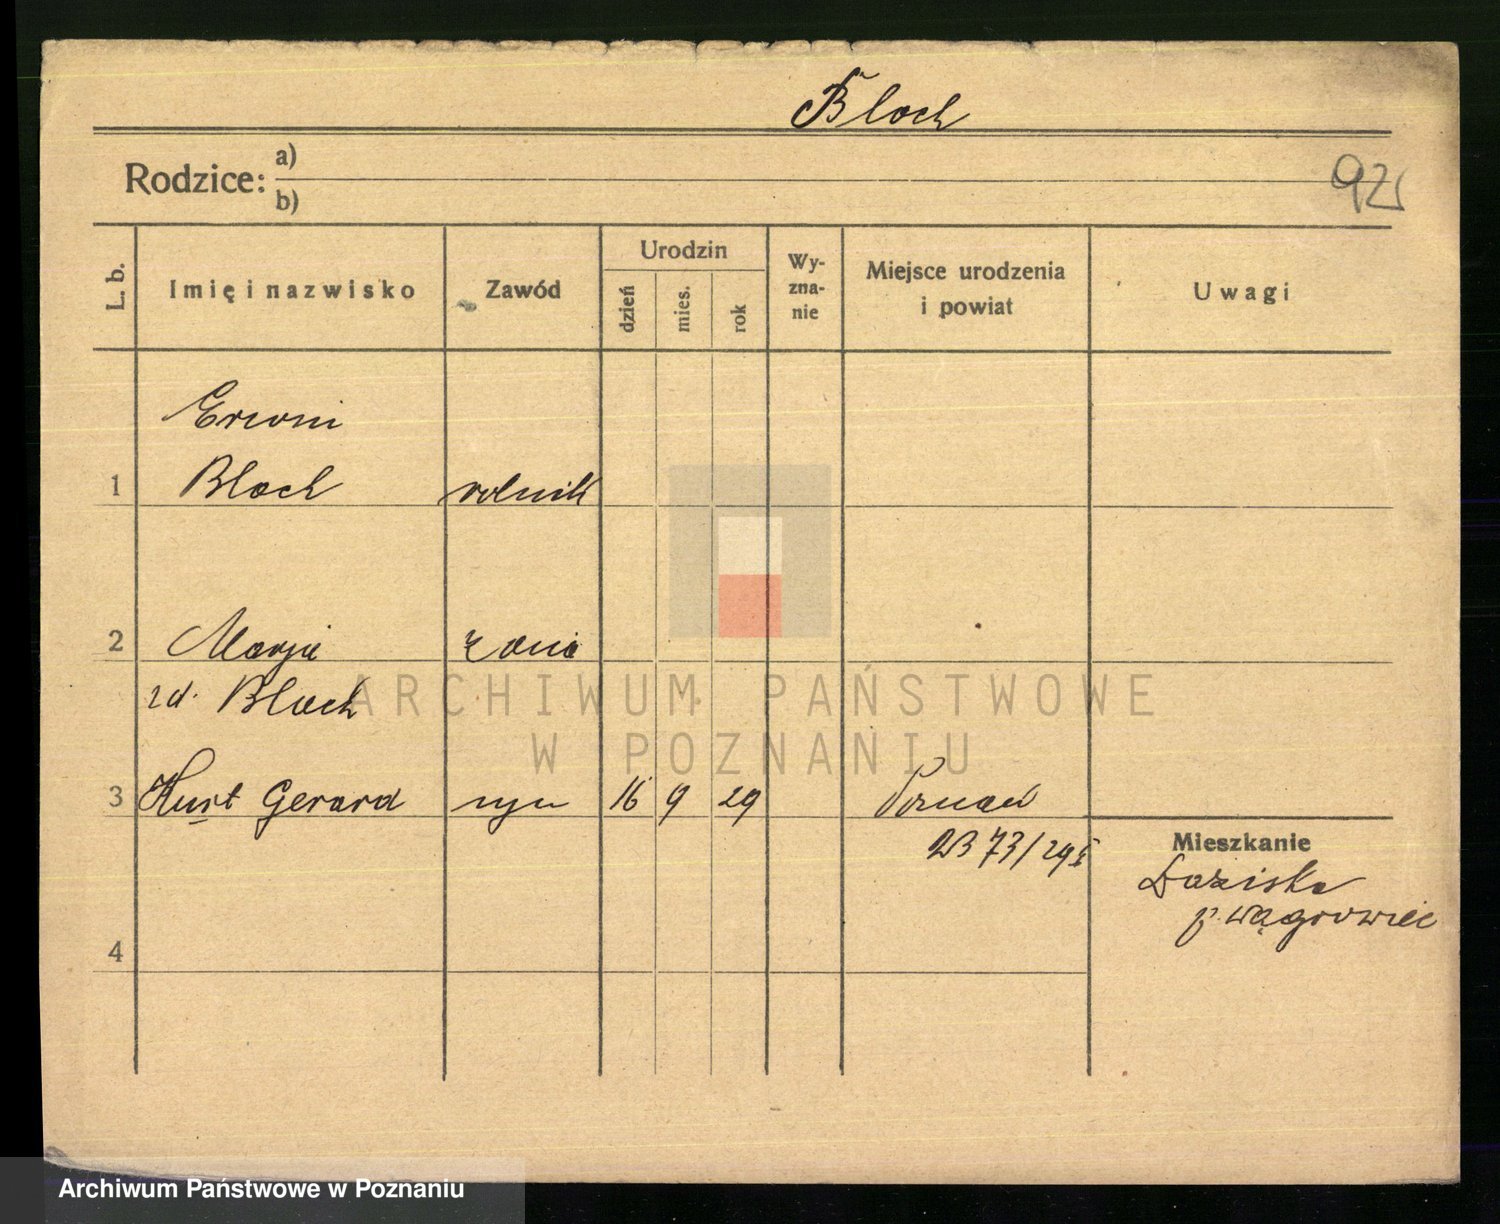 Bloch
Rodzice: a)
b)
92
L. b.
Imię i nazwisko
Zawód
Urodzin
dzień
mies.
rok
Wy-
zna-
nie
Miejsce urodzenia
i powiat
Uwagi
Erwin
1 Bloch rolnik
2 Marja żona
zd. Bloch
3 Kurt Gerard syn 16 9 29 Poznań
73/29
Mieszkanie
p. Wągrowiec
4
ARCHIWUM PAŃSTWOWE
W POZNANIU
Archiwum Państwowe w Poznaniu